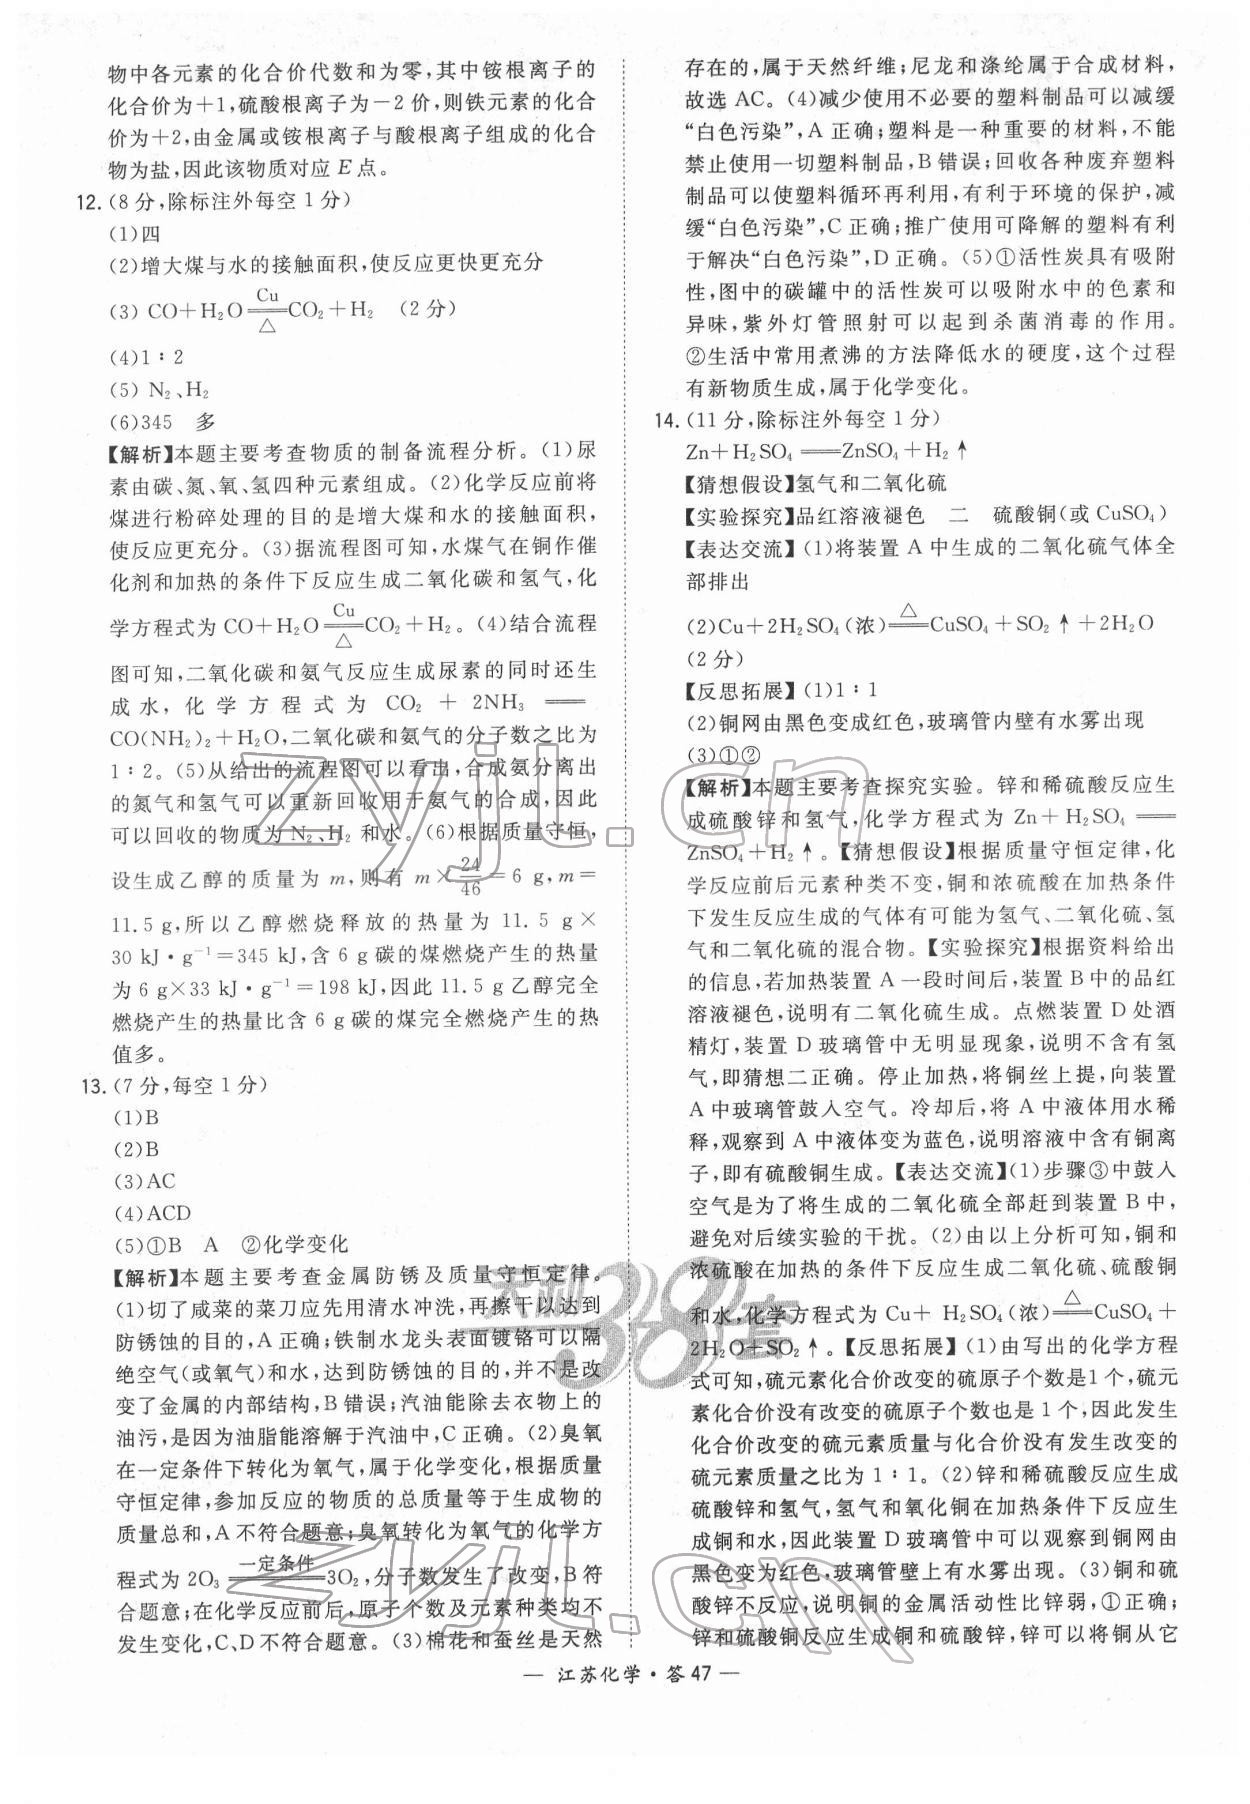 物中各元素的化合价代数和为零,其中铵根离子的
化合价为+1,硫酸根离子为-2价,则铁元素的化合
价为+2,由金属或铵根离子与酸根离子组成的化合
物为盐,因此该物质对应 E 点。
12.(8分,除标注外每空1分)
(1)四
(2)增大煤与水的接触面积,使反应更快更充分
(3) CO+H₂O ══(Cu/△) CO₂+H₂ (2分)
(4)1∶2
(5) N₂、H₂
(6)345 多
【解析】本题主要考查物质的制备流程分析。(1)尿
素由碳、氮、氧、氢四种元素组成。(2)化学反应前将
煤进行粉碎处理的目的是增大煤和水的接触面积,
使反应更充分。(3)据流程图可知,水煤气在铜作催
化剂和加热的条件下反应生成二氧化碳和氢气,化
学方程式为 CO+H₂O ══(Cu/△) CO₂+H₂。(4)结合流程
图可知,二氧化碳和氨气反应生成尿素的同时还生
成水,化学方程式为 CO₂ + 2NH₃ ══
CO(NH₂)₂+H₂O,二氧化碳和氨气的分子数之比为
1∶2。(5)从给出的流程图可以看出,合成氨分离出
的氮气和氢气可以重新回收用于氨气的合成,因此
可以回收的物质为 N₂、H₂ 和水。(6)根据质量守恒,
设生成乙醇的质量为 m,则有 m×24/46=6 g,m=
11.5 g,所以乙醇燃烧释放的热量为 11.5 g×
30 kJ·g⁻¹=345 kJ,含6 g碳的煤燃烧产生的热量
为6 g×33 kJ·g⁻¹=198 kJ,因此11.5 g乙醇完全
燃烧产生的热量比含6 g碳的煤完全燃烧产生的热
值多。
13.(7分,每空1分)
(1)B
(2)B
(3)AC
(4)ACD
(5)①B A ②化学变化
【解析】本题主要考查金属防锈及质量守恒定律。
(1)切了咸菜的菜刀应先用清水冲洗,再擦干以达到
防锈蚀的目的,A正确;铁制水龙头表面镀铬可以隔
绝空气(或氧气)和水,达到防锈蚀的目的,并不是改
变了金属的内部结构,B错误;汽油能除去衣物上的
油污,是因为油脂能溶解于汽油中,C正确。(2)臭氧
在一定条件下转化为氧气,属于化学变化,根据质量
守恒定律,参加反应的物质的总质量等于生成物的
质量总和,A不符合题意;臭氧转化为氧气的化学方
程式为 2O₃ ══(一定条件) 3O₂,分子数发生了改变,B符
合题意;在化学反应前后,原子个数及元素种类均不
发生变化,C、D不符合题意。(3)棉花和蚕丝是天然
存在的,属于天然纤维;尼龙和涤纶属于合成材料,
故选AC。(4)减少使用不必要的塑料制品可以减缓
“白色污染”,A正确;塑料是一种重要的材料,不能
禁止使用一切塑料制品,B错误;回收各种废弃塑料
制品可以使塑料循环再利用,有利于环境的保护,减
缓“白色污染”,C正确;推广使用可降解的塑料有利
于解决“白色污染”,D正确。(5)①活性炭具有吸附
性,图中的碳罐中的活性炭可以吸附水中的色素和
异味,紫外灯管照射可以起到杀菌消毒的作用。
②生活中常用煮沸的方法降低水的硬度,这个过程
有新物质生成,属于化学变化。
14.(11分,除标注外每空1分)
Zn+H₂SO₄ ══ ZnSO₄+H₂↑
【猜想假设】氢气和二氧化硫
【实验探究】品红溶液褪色 二 硫酸铜(或CuSO₄)
【表达交流】(1)将装置A中生成的二氧化硫气体全
部排出
(2)Cu+2H₂SO₄(浓) ══(△) CuSO₄+SO₂↑+2H₂O
(2分)
【反思拓展】(1)1∶1
(2)铜网由黑色变成红色,玻璃管内壁有水雾出现
(3)①②
【解析】本题主要考查探究实验。锌和稀硫酸反应生
成硫酸锌和氢气,化学方程式为 Zn+H₂SO₄ ══
ZnSO₄+H₂↑。【猜想假设】根据质量守恒定律,化
学反应前后元素种类不变,铜和浓硫酸在加热条件
下发生反应生成的气体有可能为氢气、二氧化硫、氢
气和二氧化硫的混合物。【实验探究】根据资料给出
的信息,若加热装置A一段时间后,装置B中的品红
溶液褪色,说明有二氧化硫生成。点燃装置D处酒
精灯,装置D玻璃管中无明显现象,说明不含有氢
气,即猜想二正确。停止加热,将铜丝上提,向装置
A中玻璃管鼓入空气。冷却后,将A中液体用水稀
释,观察到A中液体变为蓝色,说明溶液中含有铜离
子,即有硫酸铜生成。【表达交流】(1)步骤③中鼓入
空气是为了将生成的二氧化硫全部赶到装置B中,
避免对后续实验的干扰。(2)由以上分析可知,铜和
浓硫酸在加热的条件下反应生成二氧化硫、硫酸铜
和水,化学方程式为 Cu+ H₂SO₄(浓) ══(△) CuSO₄+
2H₂O+SO₂↑。【反思拓展】(1)由写出的化学方程
式可知,硫元素化合价改变的硫原子个数是1个,硫元
素化合价没有改变的硫原子个数也是1个,因此发生
化合价改变的硫元素质量与化合价没有发生改变的
硫元素质量之比为1∶1。(2)锌和稀硫酸反应生成
硫酸锌和氢气,氢气和氧化铜在加热条件下反应生
成铜和水,因此装置D玻璃管中可以观察到铜网由
黑色变为红色,玻璃管壁上有水雾出现。(3)铜和硫
酸锌不反应,说明铜的金属活动性比锌弱,①正确;
锌和硫酸铜反应生成铜和硫酸锌,锌可以将铜从它
— 江苏化学·答47 —
zyjl.cn
天利38套
zyjl.cn